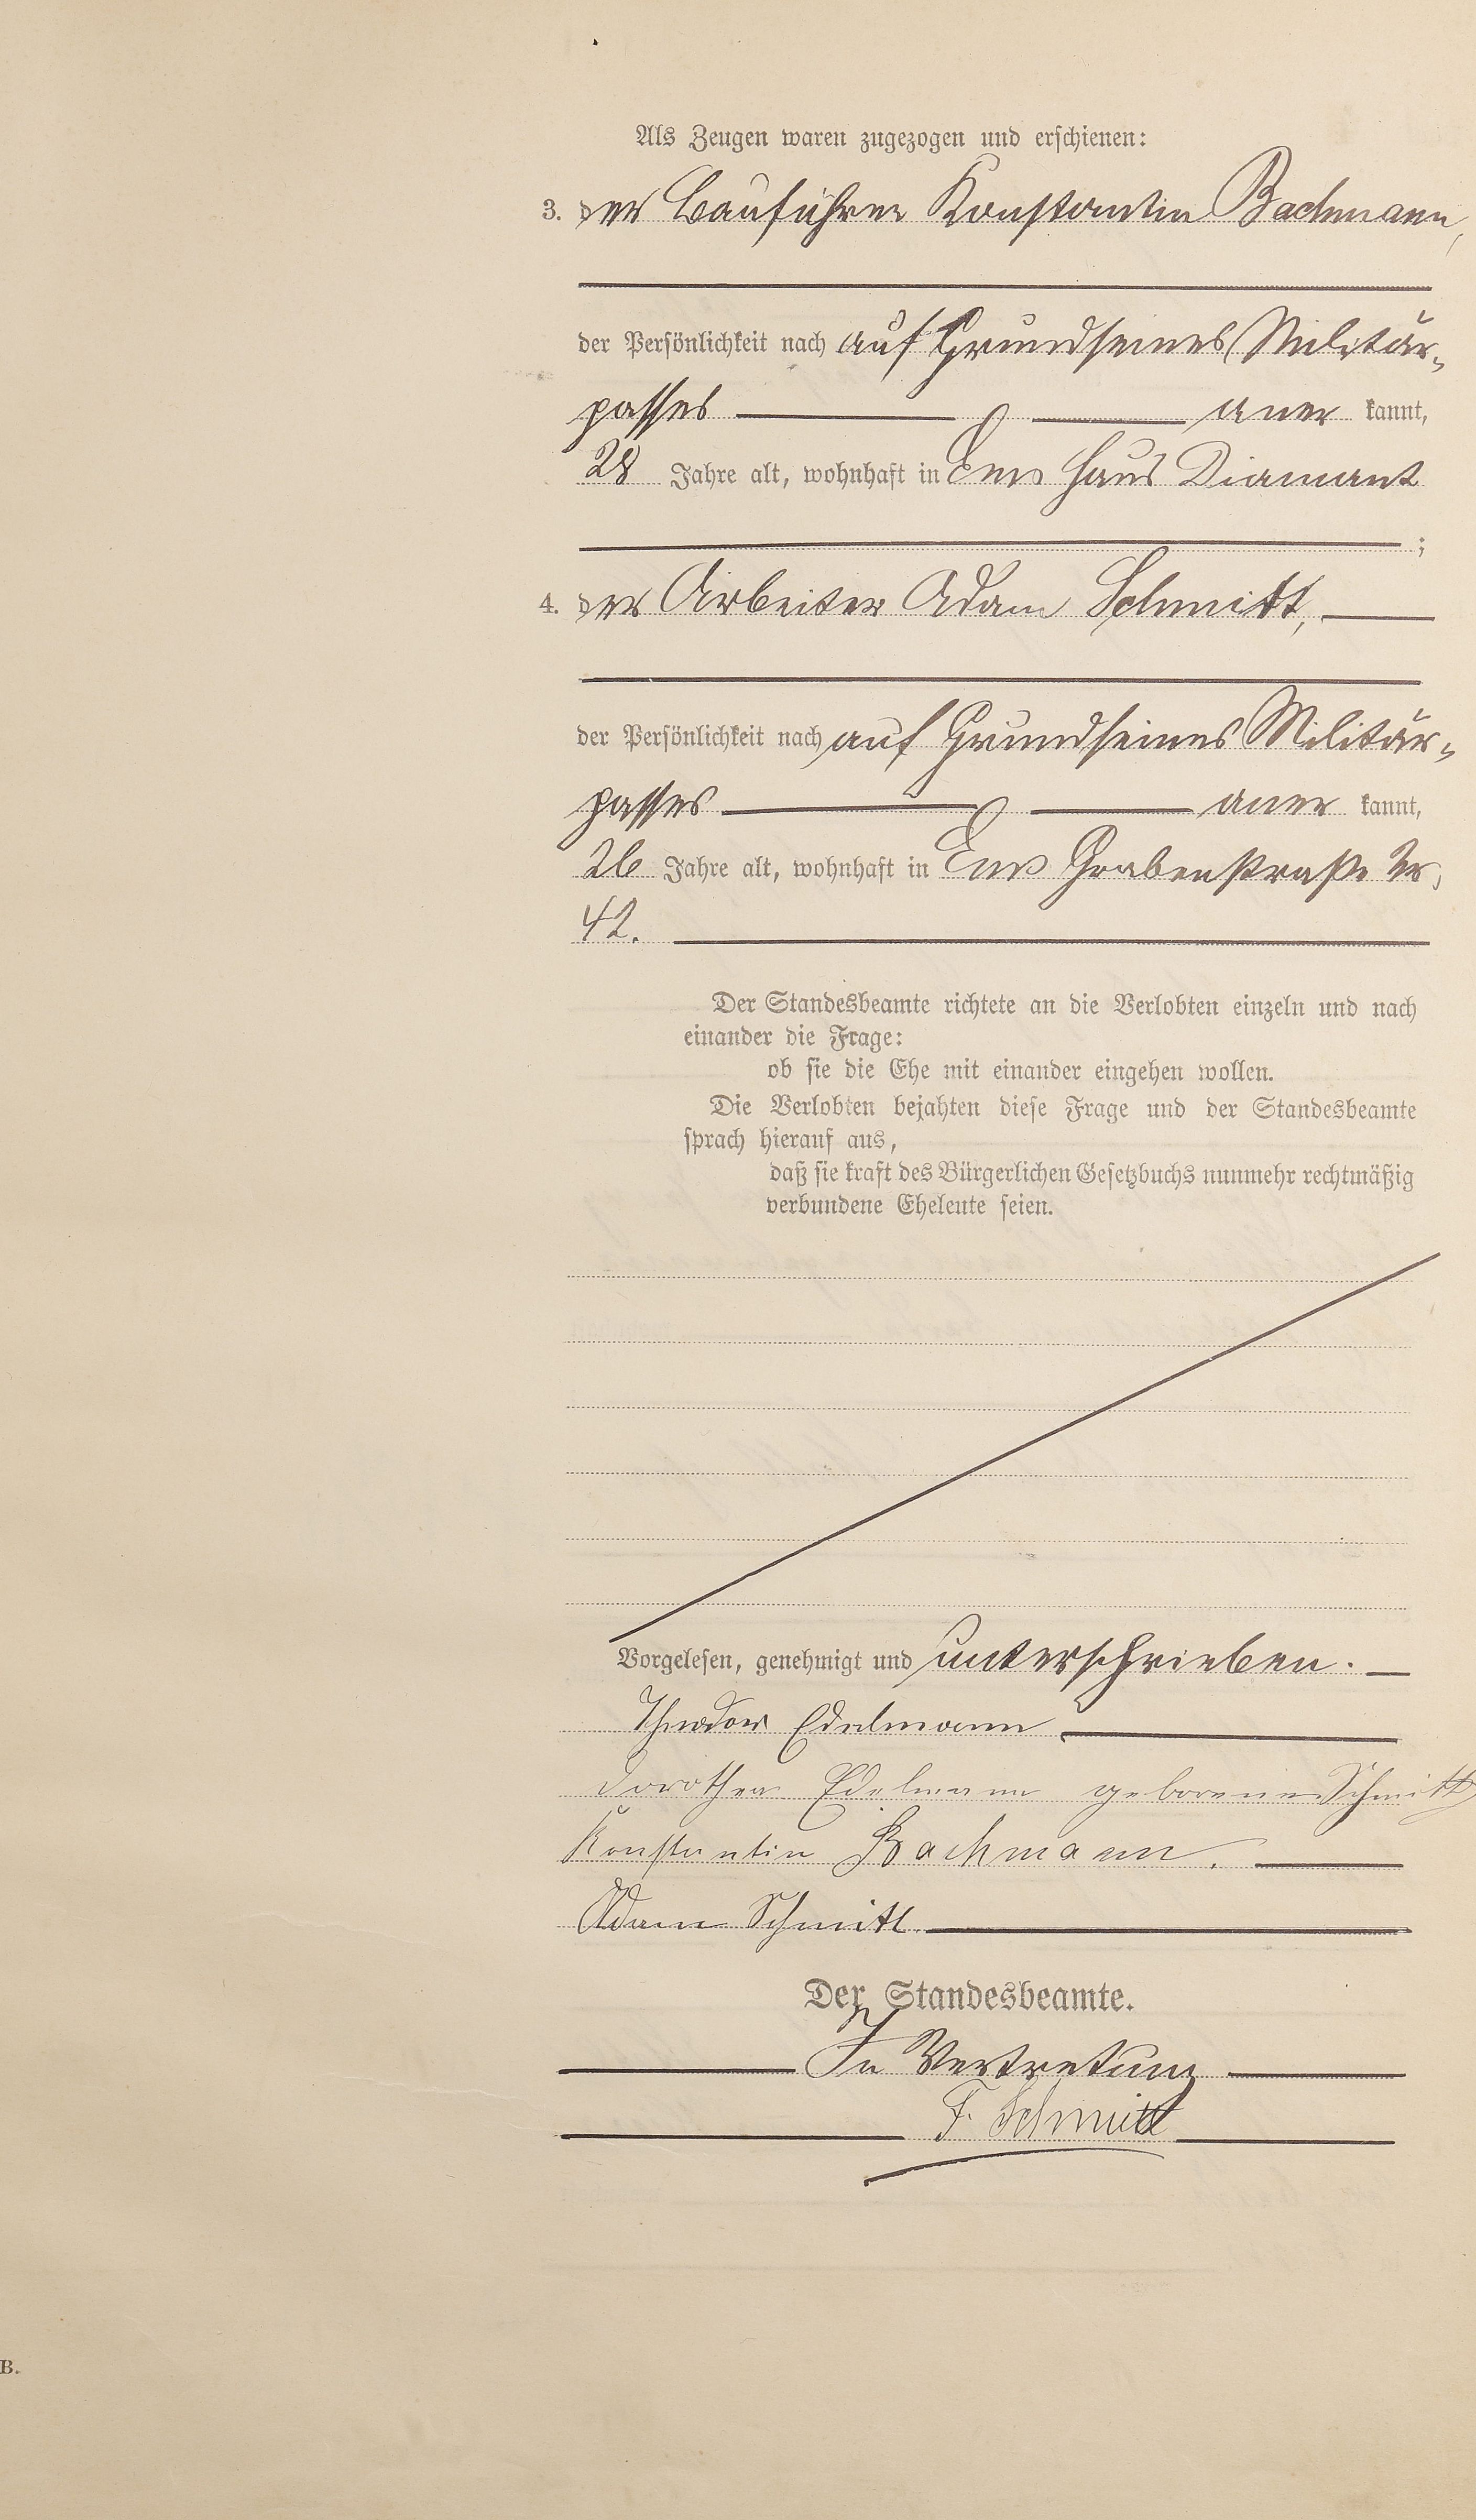 Als Zeugen waren zugezogen und erschienen:
3. der Bauführer Konstantin Bachmann,
der Persönlichkeit nach auf Grund seines Militär-
passes aner kannt,
28 Jahre alt, wohnhaft in Ems Haus Diamant
;
4. der Arbeiter Adam Schmitt,
der Persönlichkeit nach auf Grund seines Militär-
passes aner kannt,
26 Jahre alt, wohnhaft in Ems Grabenstraße Nr.
42.
Der Standesbeamte richtete an die Verlobten einzeln und nach
einander die Frage:
ob sie die Ehe mit einander eingehen wollen.
Die Verlobten bejahten diese Frage und der Standesbeamte
sprach hierauf aus,
daß sie kraft des Bürgerlichen Gesetzbuchs nunmehr rechtmäßig
verbundene Eheleute seien.
Vorgelesen, genehmigt und unterschrieben.
Theodor Edelmann
Dorothea Edelmann geborene Schmitt
Konstantin Bachmann.
Adam Schmitt.
Der Standesbeamte.
In Vertretung
F. Schmitt
B.